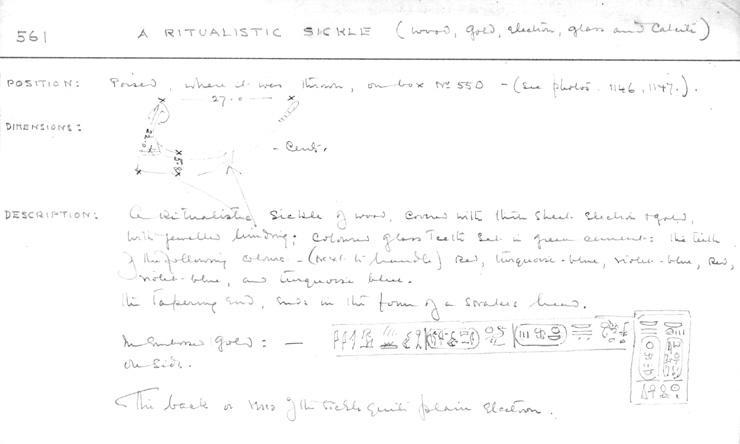 561 A RITUALISTIC SICKLE (Wood, Gold, Electron, glass and Calcite)
POSITION: Poised, where it was thrown, on box No 550 - (See photos. 1146, 1147.).
27.0
DIMENSIONS:
22.0
5.8
- Cent.
DESCRIPTION: A Ritualistic Sickle of wood, covered with thin sheet electron & gold,
with jewelled binding; coloured glass teeth set in green cement: the teeth
of the following colours - (next to handle) Red, turquoise-blue, violet-blue, Red,
violet-blue, and turquoise blue.
The tapering end, ends in the form of a head.
In Embossed Gold: —
on side.
The back or of the sickle quite plain electron.